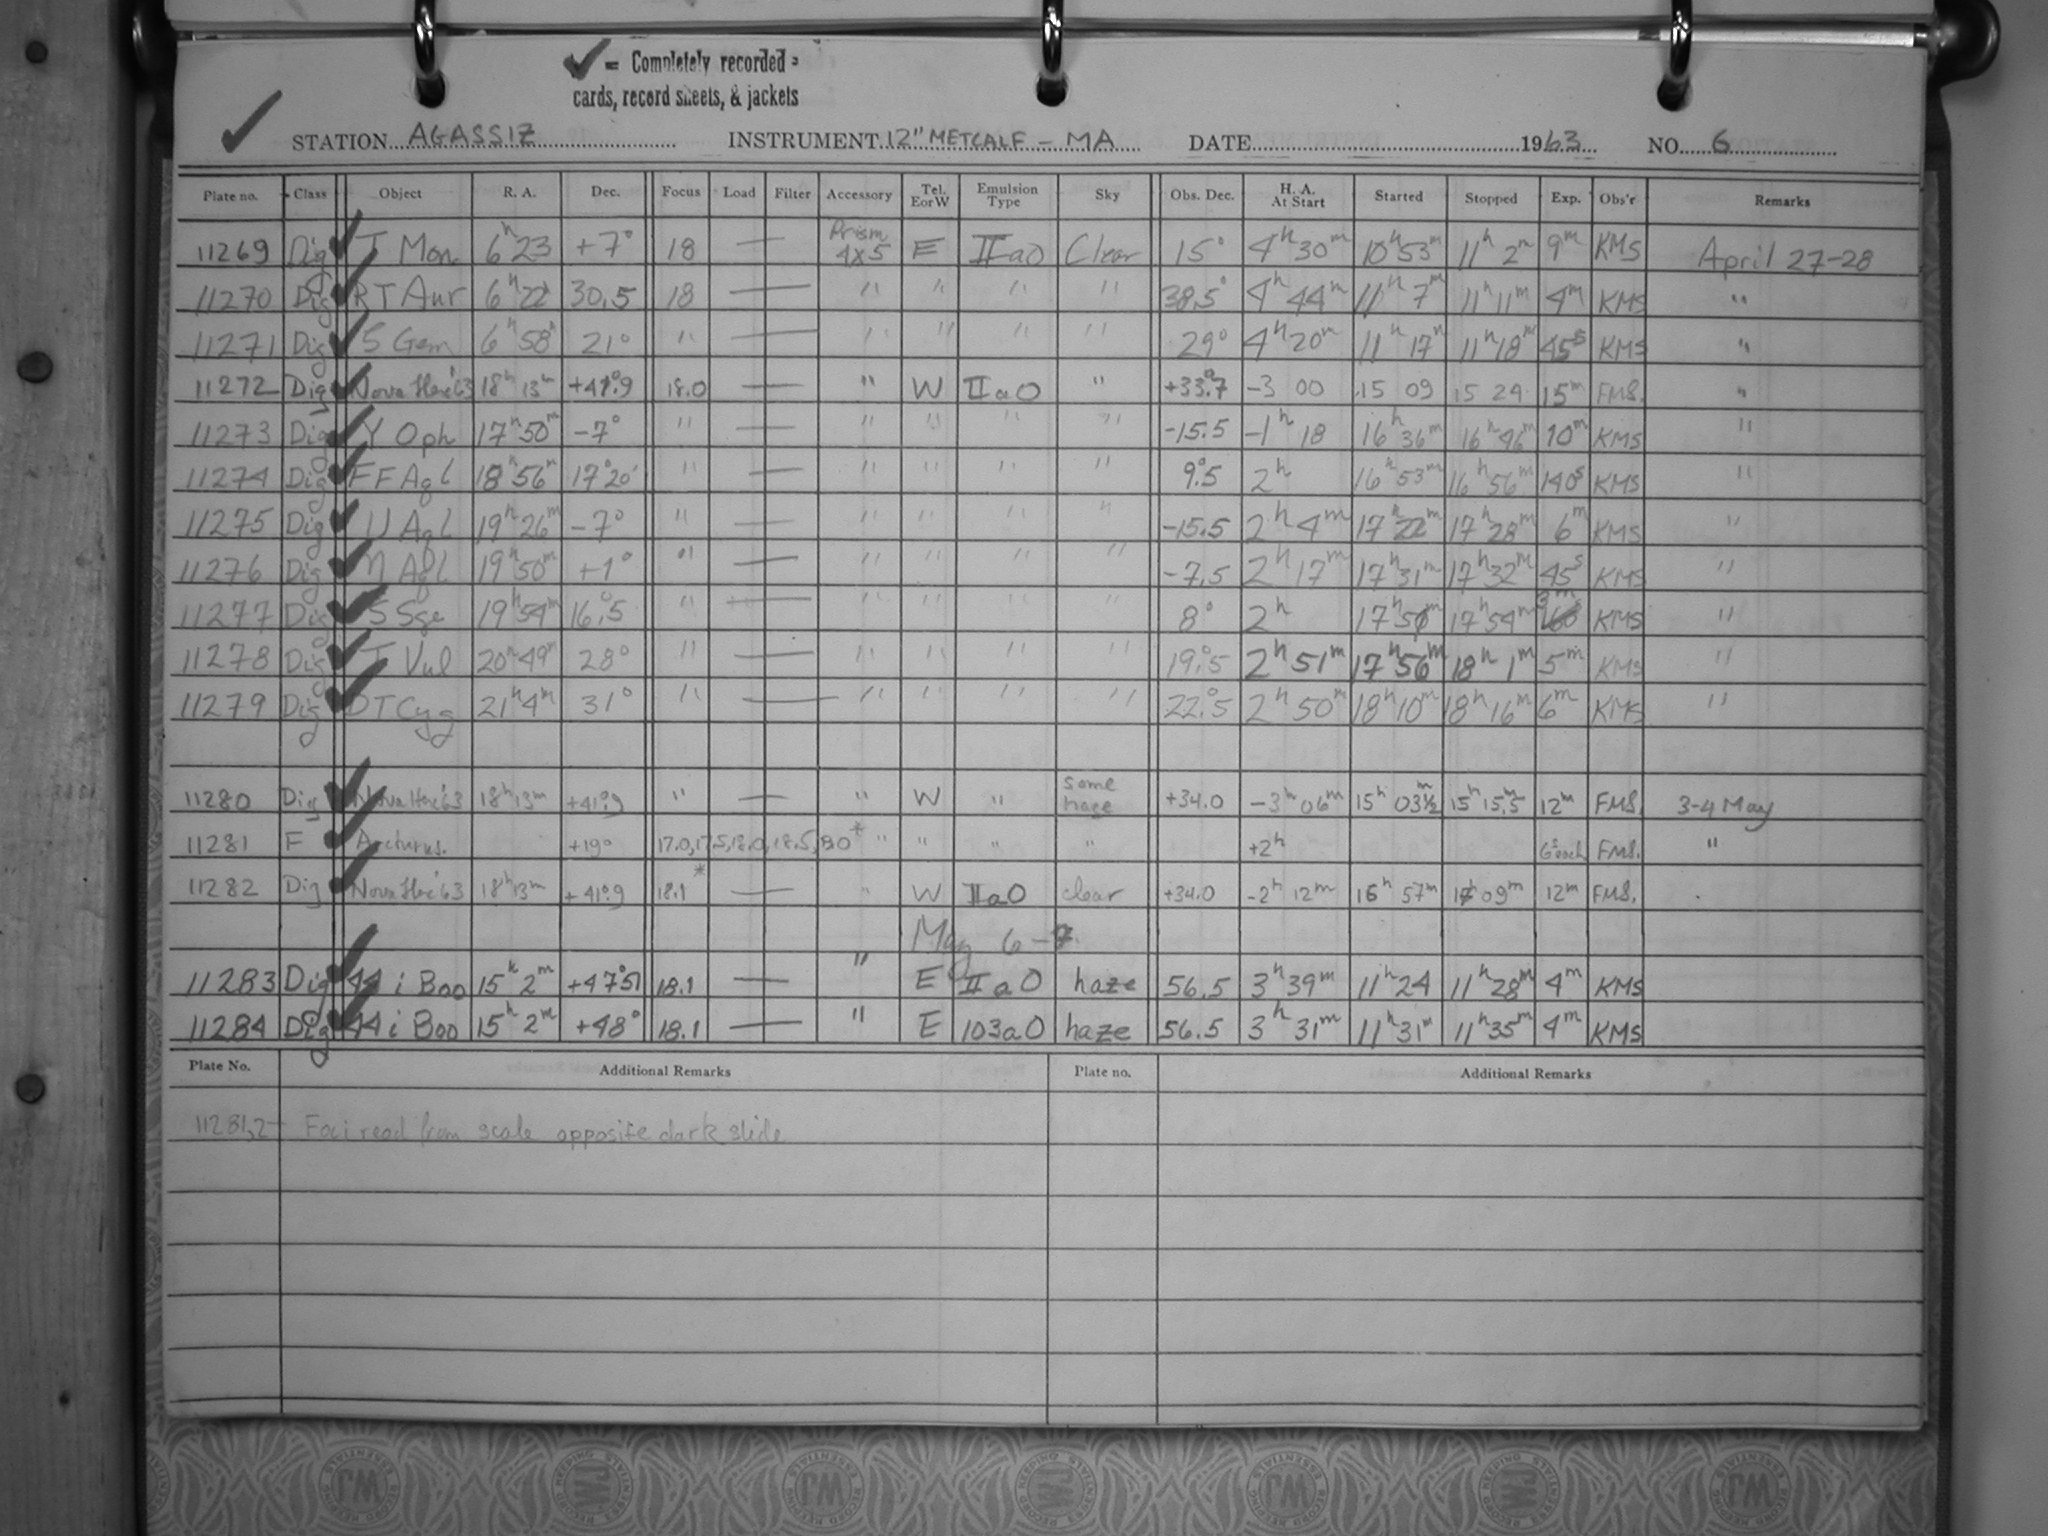 ✓ = Completely recorded -
cards, record sheets, & jackets
✓ STATION AGASSIZ INSTRUMENT 12" METCALF - MA DATE 1963 NO. 6
Plate no. Class Object R. A. Dec. Focus Load Filter Accessory Tel. E or W Emulsion Type Sky Obs. Dec. H. A. At Start Started Stopped Exp. Obs'r Remarks
11269 Dig ✓ T Mon 6h 23 +7° 18 — Prism 4x5 E IIaO Clear 15° 4h 30m 10h 53m 11h 2m 9m KMS April 27-28
11270 Dig ✓ RT Aur 6h 22 30.5 18 — " " " " 38.5° 4h 44m 11h 7m 11h 11m 4m KMS "
11271 Dig ✓ S Gem 6h 58m 21° " — " " " " 29° 4h 20m 11h 17m 11h 18m 45s KMS "
11272 Dig ✓ Nova Her '63 18h 13m +41°.9 18.0 — " W IIaO " +33°.7 -3 00 15 09 15 24 15m FMS. "
11273 Dig ✓ Y Oph 17h 50m -7° " — " " " " -15.5 -1h 18 16h 36m 16h 46m 10m KMS "
11274 Dig ✓ FF Aql 18h 56m 17°20' " — " " " " 9°.5 2h 16h 53m 16h 56m 140s KMS "
11275 Dig ✓ U Aql 19h 26m -7° " — " " " " -15.5 2h 4m 17h 22m 17h 28m 6m KMS "
11276 Dig ✓ η Aql 19h 50m +1° " — " " " " -7.5 2h 17m 17h 31m 17h 32m 45s KMS "
11277 Dig ✓ S Sge 19h 54m 16°.5 " — " " " " 8° 2h 17h 51m 17h 54m 3m KMS "
11278 Dig ✓ T Vul 20h 49m 28° " — " " " " 19°.5 2h 51m 17h 56m 18h 1m 5m KMS "
11279 Dig ✓ DT Cyg 21h 4m 31° " — " " " " 22°.5 2h 50m 18h 10m 18h 16m 6m KMS "
11280 Dig ✓ Nova Her '63 18h 13m +41°.9 " — " W " some haze +34.0 -3h 06m 15h 03½m 15h 15.5m 12m FMS. 3-4 May
11281 F ✓ Arcturus. +19° 17.0, 17.5, 18.0, 18.5, * " " " " +2h 6s each FMS. "
11282 Dig ✓ Nova Her '63 18h 13m +41°.9 18.1* — " W IIaO clear +34.0 -2h 12m 16h 57m 09m 12m FMS.
May 6-7.
11283 Dig ✓ 44 i Boo 15h 2m +47°51 18.1 — " E IIaO haze 56.5 3h 39m 11h 24 11h 28m 4m KMS
11284 Dig ✓ 44 i Boo 15h 2m +48° 18.1 — " E 103aO haze 56.5 3h 31m 11h 31m 11h 35m 4m KMS
Plate No. Additional Remarks Plate no. Additional Remarks
11281,2 - Foci read from scale opposite dark slide